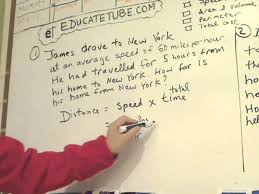 e EDUCATETUBE.COM
Speed
Area & Volume
Perimeter
Total cost
① James drove to New York
at an average speed of 60 miles per hour
He had travelled for 5 hours from
his home to New York. How far is
his home from New York?
Distance = Speed x total
time
2